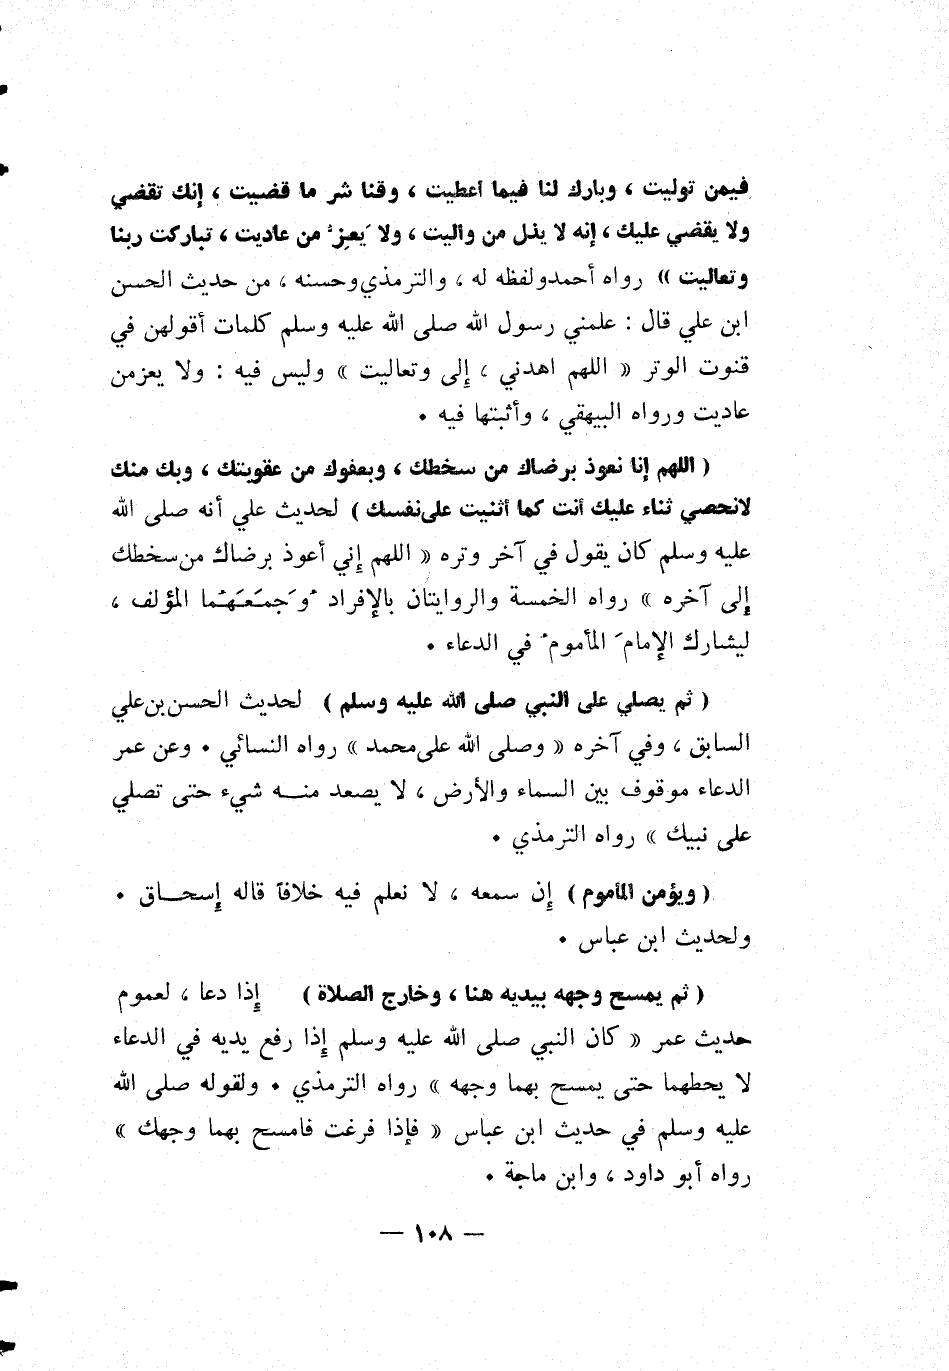 فيمن توليت ، وبارك لنا فيما أعطيت ، وقنا شر ما قضيت ، إنك تقضي
ولا يقضي عليك ، إنه لا يذل من واليت ، ولا يَعِزُّ من عاديت ، تباركت ربنا
وتعاليت )) رواه أحمد ولفظه له ، والترمذي وحسنه ، من حديث الحسن
ابن علي قال : علمني رسول الله صلى الله عليه وسلم كلمات أقولهن في
قنوت الوتر « اللهم اهدني ، إلى وتعاليت » وليس فيه : ولا يعز من
عاديت ورواه البيهقي ، وأثبتها فيه .
( اللهم إنا نعوذ برضاك من سخطك ، وبعفوك من عقوبتك ، وبك منك
لا نحصي ثناء عليك أنت كما أثنيت على نفسك ) لحديث علي أنه صلى الله
عليه وسلم كان يقول في آخر وتره « اللهم إني أعوذ برضاك من سخطك
إلى آخره » رواه الخمسة والروايتان بالإفراد وَجمَعَهُما المؤلف ،
ليشارك الإمامَ المأمومُ في الدعاء .
( ثم يصلي على النبي صلى الله عليه وسلم ) لحديث الحسن بن علي
السابق ، وفي آخره « وصلى الله على محمد » رواه النسائي . وعن عمر
الدعاء موقوف بين السماء والأرض ، لا يصعد منــه شيء حتى تصلي
على نبيك » رواه الترمذي .
( ويؤمن المأموم ) إن سمعه ، لا نعلم فيه خلافاً قاله إسحــاق .
ولحديث ابن عباس .
( ثم يمسح وجهه بيديه هنا ، وخارج الصلاة ) إذا دعا ، لعموم
حديث عمر « كان النبي صلى الله عليه وسلم إذا رفع يديه في الدعاء
لا يحطهما حتى يمسح بهما وجهه » رواه الترمذي . ولقوله صلى الله
عليه وسلم في حديث ابن عباس « فإذا فرغت فامسح بهما وجهك »
رواه أبو داود ، وابن ماجة .
— ١٠٨ —